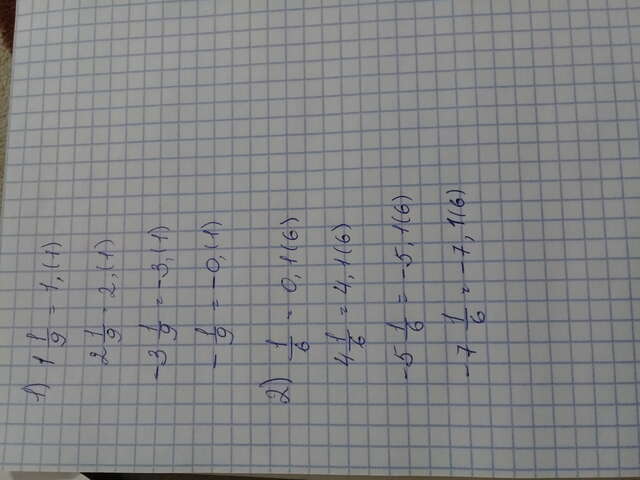 1) 1 1/9 = 1,(1)
2 1/9 = 2,(1)
-3 1/9 = -3,(1)
- 1/9 = -0,(1)
2) 1/6 = 0,1(6)
4 1/6 = 4,1(6)
-5 1/6 = -5,1(6)
-7 1/6 = -7,1(6)